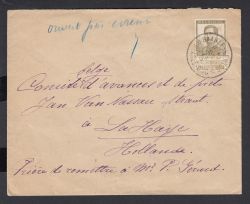 ouvert par erreur
Belge
Comité d'avances et de prêts
Jan Van Nassau straat
à La Haye
Hollande
Prière de remettre à Mr P. Gérard